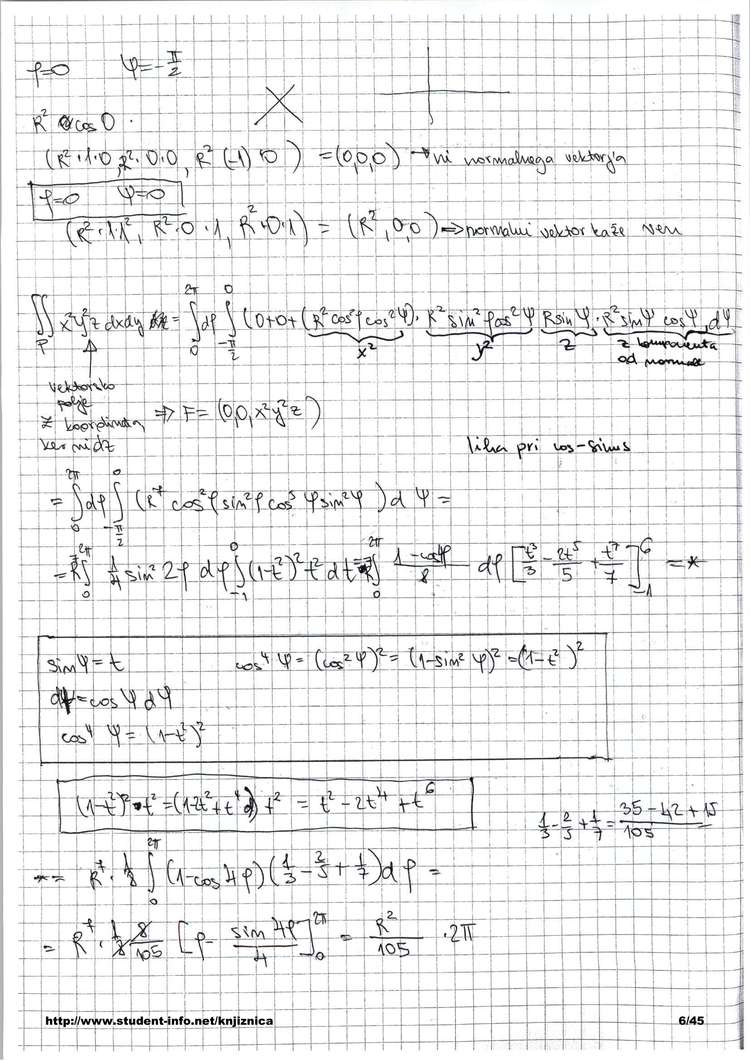 φ=0 ψ=-π/2
R² cos 0 ·
(R²·1·0, R²·0·0, R²(-1)·0) = (0,0,0) → ni normalnega vektorja
φ=0 ψ=0
(R²·1·1², R²·0·1, R²·0·1) = (R²,0,0) ⇒ normalni vektor kaže ven
∬_P x²y²z dxdy = ∫_0^{2π} dφ ∫_{-π/2}^0 (0+0+(R²cos²φcos²ψ)·R²sin²φcos²ψ Rsinψ·R²sinψ cosψ dψ
x² y² z z komponenta
od normale
vektorsko
polje
z koordinata ⇒ F=(0,0,x²y²z)
ker ni dz
liha pri cos-sinus
= ∫_0^{2π} dφ ∫_{-π/2}^0 (R⁷ cos²φ sin²φ cos⁵ψ sin²ψ) dψ =
= R⁷ ∫_0^{2π} 1/4 sin²2φ dφ ∫_{-1}^0 (1-t²)² t² dt = R⁷ ∫_0^{2π} (1-cos4φ)/8 dφ [t³/3 - 2t⁵/5 + t⁷/7]_{-1}^0 = *
sinψ = t cos⁴ψ = (cos²ψ)² = (1-sin²ψ)² = (1-t²)²
dt = cosψ dψ
cos⁴ψ = (1-t²)²
(1-t²)²·t² = (1-2t²+t⁴) t² = t² - 2t⁴ + t⁶
1/3 - 2/5 + 1/7 = (35-42+15)/105
* = R⁷·1/8 ∫_0^{2π} (1-cos4φ)(1/3 - 2/5 + 1/7) dφ =
= R⁷·1/8 8/105 [φ - sin4φ/4]_0^{2π} = R²/105 ·2π
http://www.student-info.net/knjiznica 6/45